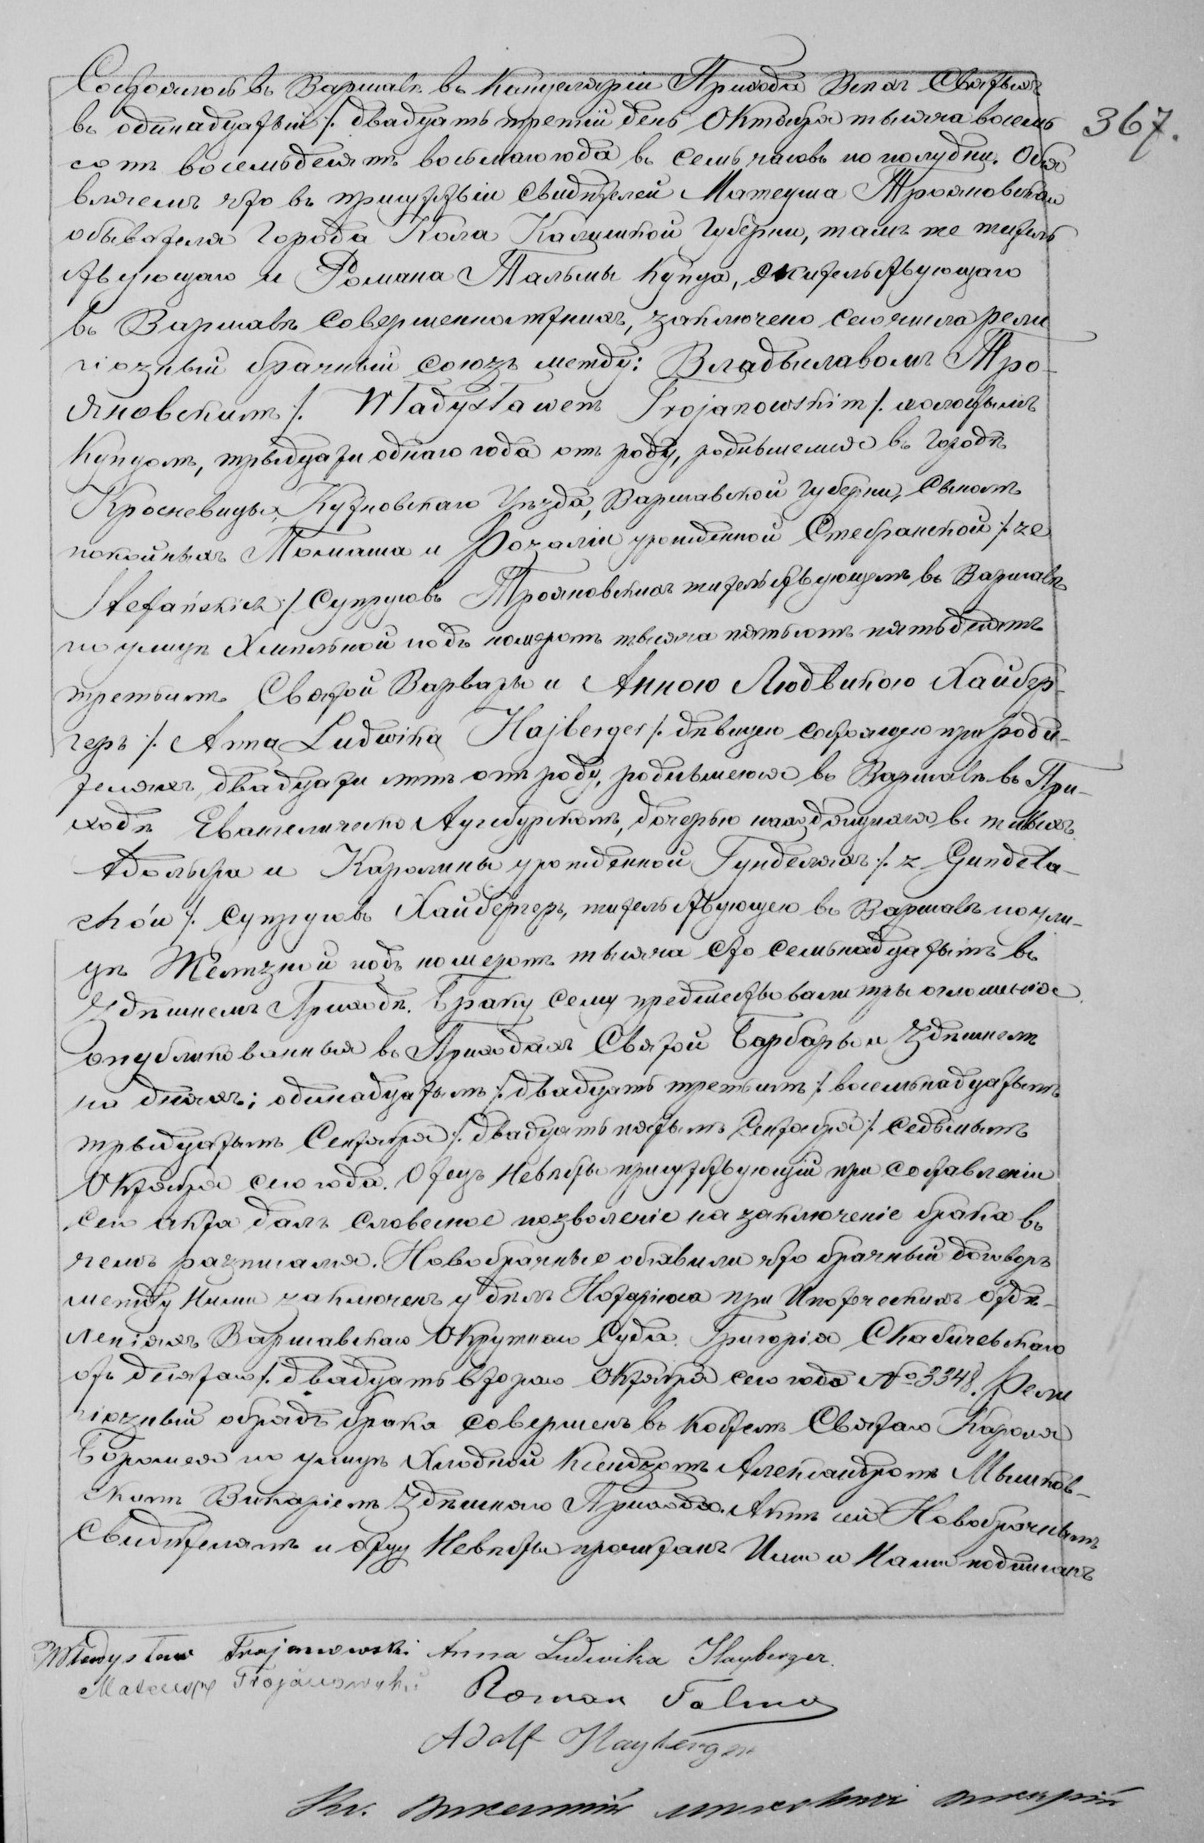 Состоялось въ Варшавѣ въ Канцеляріи Прихода Всѣхъ Святыхъ
въ одинадцатый /. двадцать третій день Октября тысяча восемь
сотъ восемьдесятъ восьмаго года въ семь часовъ по полудни. Объя
вляемъ что въ присутствіи Свидѣтелей Матеуша Трояновскаго
обывателя Города Кола Калишской Губерніи, тамъ же житель
ствующаго и Романа Тальмы Купца, жительствующаго
въ Варшавѣ совершеннолѣтнихъ, заключено сего числа рели
гіозный брачный союзъ между: Владыславомъ Тро-
яновскимъ /. Władysławem Trojanowskim /. холостымъ
Купцомъ, трыдцати однаго года отъ роду, родившемся въ Городѣ
Кросневицы, Кутновскаго Уѣзда, Варшавской Губерніи, Сыномъ
покойныхъ Томаша и Розаліи урожденной Стефанской /. ze
Stefańskich /. Супруговъ Трояновскихъ жительствующемъ въ Варшавѣ
по улицѣ Хмѣльной подъ номеромъ тысяча пятьсотъ пятьдесятъ
третьимъ Святой Варвары и Анною Людвикою Хайбер-
геръ /. Anna Ludwika Hajberger /. дѣвицею состоящею при роди-
теляхъ, двадцати лѣтъ отъ роду, родившеюся въ Варшавѣ въ При-
ходѣ Евангелическо Аугсбурскомъ, дочерью находящихся въ живыхъ
Адольфа и Каролины урожденной Гунделяхъ /. z Gundela-
chów /. супруговъ Хайбергеръ, жительствующею въ Варшавѣ по ули-
цѣ Желѣзной подъ номеромъ тысяча сто семьнадцатымъ въ
Здѣшнемъ Приходѣ. Браку сему предшествовали тры оглашенія
опубликованныя въ Приходахъ Святой Барбары и Здѣшнемъ
по дняхъ; одинадцатымъ /. двадцать третьимъ /. восемьнадцатымъ
трыдцатымъ Сентября /. двадцать пятымъ Сентября /. седьмымъ
Октября сего года. Отецъ Невѣсты присутствующій при составленіи
сего акта далъ словесное позволеніе на заключеніе брака въ
чемъ разписался. Новобрачные объявили что брачный договоръ
между ними заключенъ у дѣлъ Нотаріуса при Ипотческихъ Отдѣ-
леніяхъ Варшавскаго Окружнаго Суда Григорія Скабичевскаго
отъ десятаго /. двадцать втораго Октября сего года № 3348. Рели
гіозный обрядъ брака совершенъ въ Костелѣ Святаго Кароля
Боромея по улицѣ Хлодной Ксендзомъ Александромъ Мышков-
скимъ Викаріемъ Здѣшняго Прихода. Актъ сей Новобрачнымъ
Свидѣтелямъ и отцу Невѣсты прочитанъ Ими и Нами подписанъ
367.
Władysław Trojanowski Anna Ludwika Hayberger.
Mateusz Trojanowski Roman Talma
Adolf Hayberger
Кс.